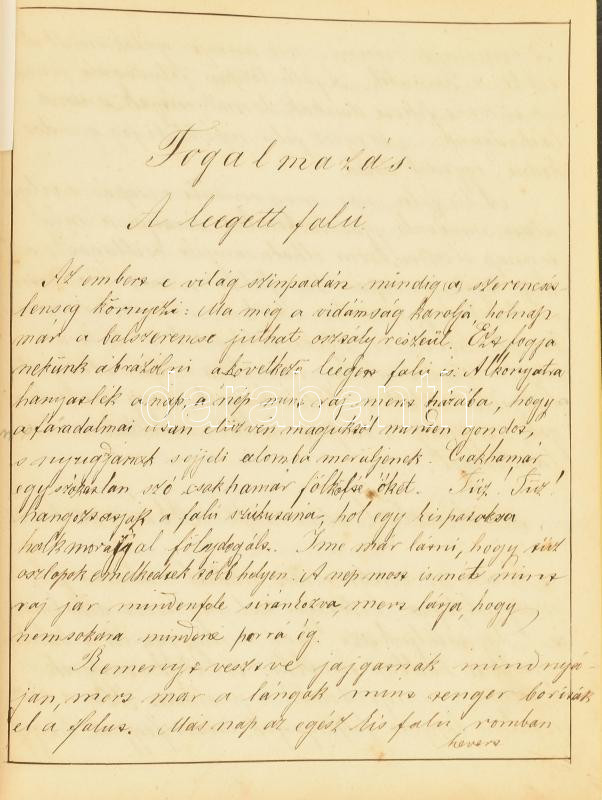 Fogalmazás.
A leégett falu.
Az embert e világ szinpadán mindig (a) szerencsét-
lenség környezi: Ma még a vidámság karolja, holnap
már a balszerencse juthat osztály részéül. Ezt fogja
nekünk ábrázolni a következő leégett falu is. Alkonyatra
hanyatlék a nap, a nép mint raj ment házába, hogy
a fáradalmai után elűzvén maguktól minden gondot,
s nyugodjanak séjjeli álomba merüljenek. Csakhamár
egy szokatlan szó csakhamár fölkelté őket. Tüz! Tüz!
hangoztatják a falu szikusána, hol egy kis patakocska
halk morajjal fölydogált. Ime már látni, hogy tüz
oszlopok emelkednek több helyen. A nép most ismét mint
raj jár mindenfelé siránkozva, mert látja, hogy
nemsokára mindene porrá ég.
Reményt vesztve jajgatnak mindnyá-
jan, mert már a lángok mint tenger boriták
el a falut. Más nap az egész kis falu romban
hevert
darabanth